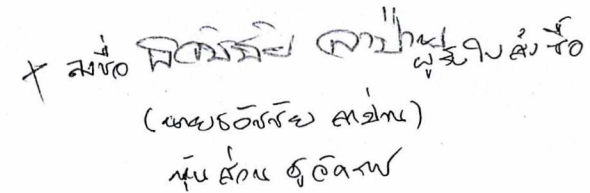 ลงชื่อ ธวัชชัย ลาป่าน ผู้รับใบสั่งซื้อ
(นายธวัชชัย ลาป่าน)
หุ้นส่วนผู้จัดการ